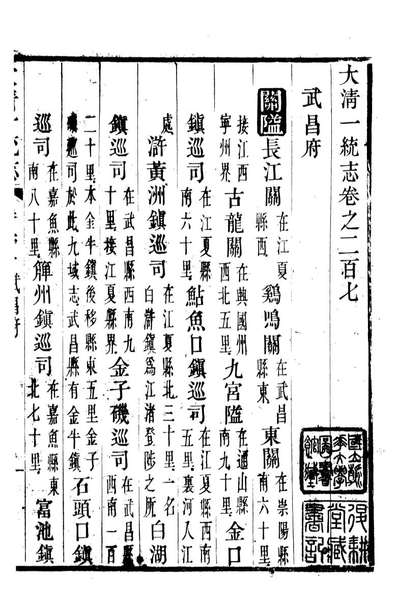 大清一統志卷之二百七
武昌府
關隘長江關在江夏縣西雞鳴關在武昌縣東東關在崇陽縣南六十里
接江西寧州界古龍關在興國州西北五里九宮隘在通山縣南九十里金口
鎮巡司在江夏縣南六十里鮎魚口鎮巡司在江夏縣西南五里襄河入江
處滸黃洲鎮巡司在江夏縣北三十里一名白滸鎮爲江渚登陟之所白湖
鎮巡司在武昌縣西南九十里接江夏縣界金子磯巡司在武昌縣西南一百
二十里本金牛鎮後移縣東五里金子磯巡司於此九域志武昌縣有金牛鎮石頭口鎮
巡司在嘉魚縣南八十里簰州鎮巡司在嘉魚縣東北七十里富池鎮